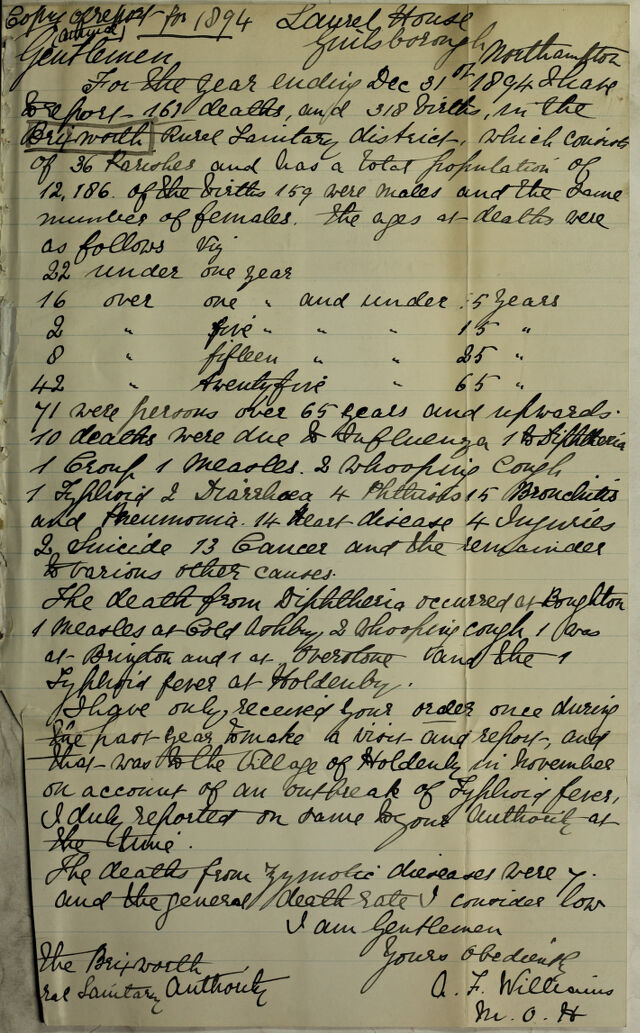 Copy of report for 1894 Laurel House
(annual) Guilsborough
Gentlemen Northampton
For the year ending Dec 31st 1894 I have
to report 161 deaths, and 318 births, in the
Brixworth Rural Sanitary district, which consists
of 36 Parishes and has a total population of
12,186. of the births 159 were males and the same
number of females. The ages at deaths were
as follows viz
22 under one year
16 over one " and under 5 years
2 " five " " " 15 "
8 " fifteen " " 25 "
42 " twentyfive " 65 "
71 were persons over 65 years and upwards.
10 deaths were due to Influenza 1 to Diphtheria
1 Croup 1 Measles. 2 Whooping Cough
1 Typhoid 2 Diarrhoea 4 Phthisis 15 Bronchitis
and Pneumonia. 14 Heart disease 4 Injuries
2 Suicide 13 Cancer and the remainder
to various other causes.
The death from Diphtheria occurred at Boughton
1 Measles at Cold Ashby, 2 Whooping cough, 1 was
at Brington and 1 at Overstone and the 1
Typhoid fever at Holdenby.
I have only received your order once during
the past year to make a visit and report, and
that was to the Village of Holdenby in November
on account of an outbreak of Typhoid fever,
I duly reported on same to your Authority at
the time.
The deaths from Zymotic diseases were 7.
and the general death rate I consider low
I am Gentlemen
Yours Obediently
The Brixworth A. F. Williams
ral Sanitary Authority M. O. H